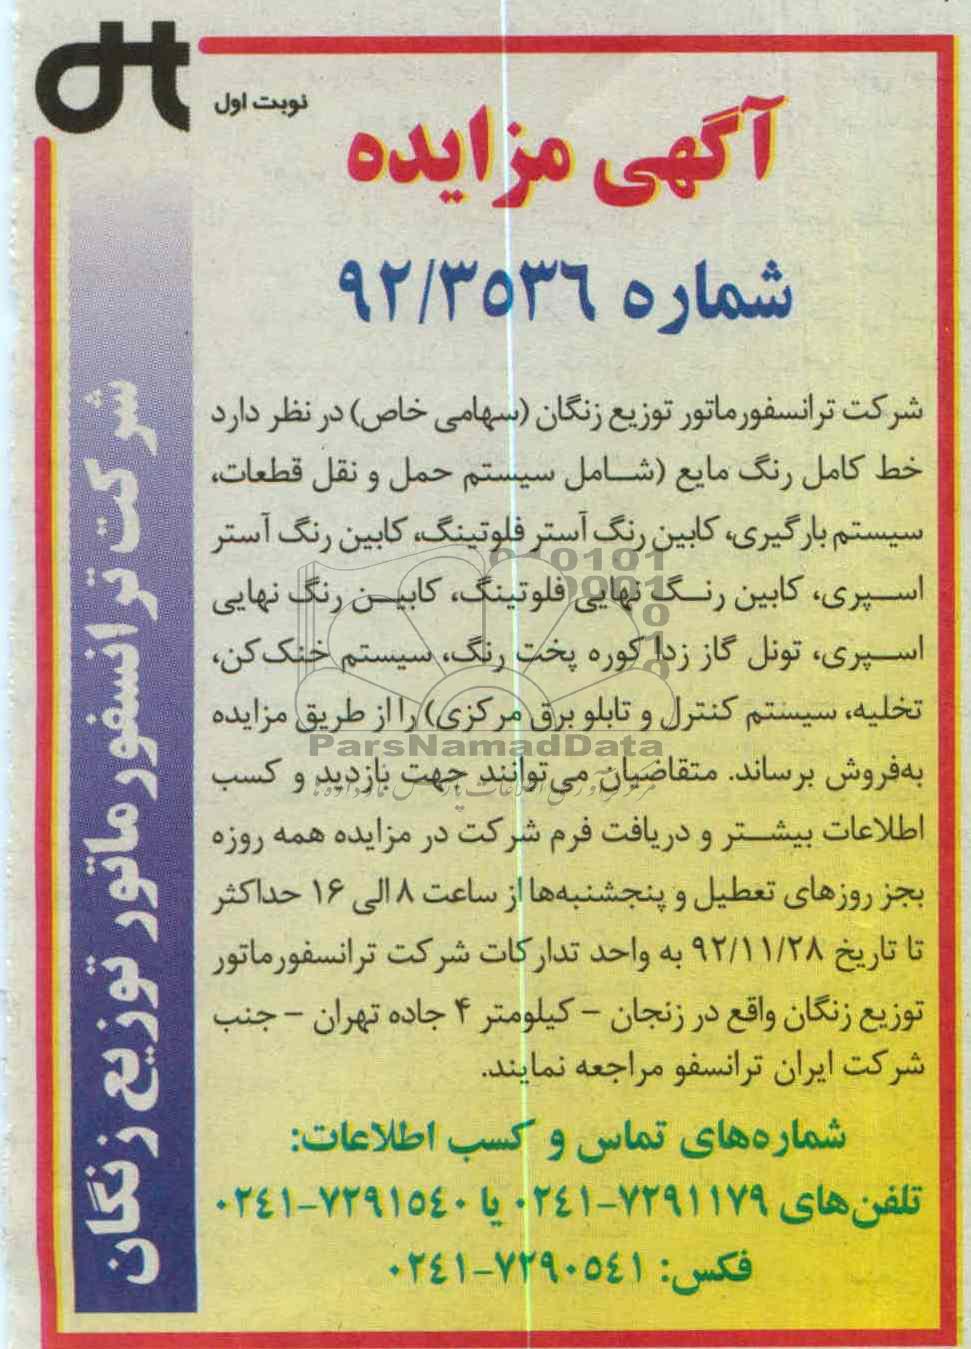 نوبت اول
آگهی مزایده
شماره ۹۲/۳۵۳۶
شرکت ترانسفورماتور توزیع زنگان (سهامی خاص) در نظر دارد
خط کامل رنگ مایع (شامل سیستم حمل و نقل قطعات،
سیستم بارگیری، کابین رنگ آستر فلوتینگ، کابین رنگ آستر
اسپری، کابین رنگ نهایی فلوتینگ، کابین رنگ نهایی
اسپری، تونل گاز زدا کوره پخت رنگ، سیستم خنک‌کن،
تخلیه، سیستم کنترل و تابلو برق مرکزی) را از طریق مزایده
به‌فروش برساند. متقاضیان می‌توانند جهت بازدید و کسب
اطلاعات بیشتر و دریافت فرم شرکت در مزایده همه روزه
بجز روزهای تعطیل و پنجشنبه‌ها از ساعت ۸ الی ۱۶ حداکثر
تا تاریخ ۹۲/۱۱/۲۸ به واحد تدارکات شرکت ترانسفورماتور
توزیع زنگان واقع در زنجان - کیلومتر ۴ جاده تهران - جنب
شرکت ایران ترانسفو مراجعه نمایند.
شماره‌های تماس و کسب اطلاعات:
تلفن‌های ۷۲۹۱۱۷۹-۰۲۴۱ یا ۷۲۹۱۵۴۰-۰۲۴۱
فکس: ۷۲۹۰۵۴۱-۰۲۴۱
شرکت ترانسفورماتور توزیع زنگان
ParsNamadData